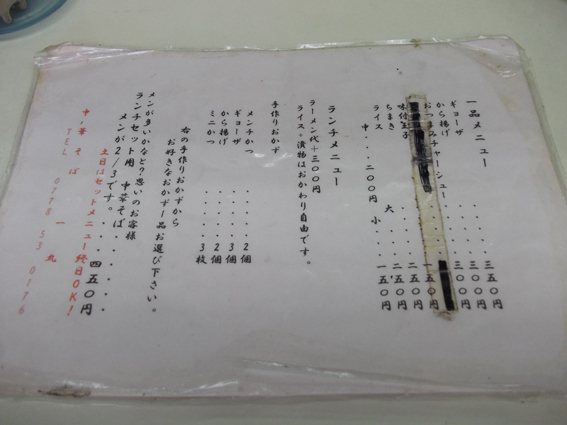 一品メニュー
ギョーザ・・・・・・三五〇円
から揚げ・・・・・・三〇〇円
おつまみチャーシュー・・・・三〇〇円
味付玉子・・・・・・一五〇円
ちまき・・・・・・二五〇円
ライス 大・・二五〇円
中・・・二〇〇円 小・・・一五〇円
ランチメニュー
ラーメン代+三〇〇円
ライス・漬物はおかわり自由です。
手作りおかず
メンチかつ・・・・・2個
ギョーザ・・・・・3個
から揚げ・・・・・2個
ミニかつ・・・・・3枚
右の手作りおかずから
お好きなおかず一品お選び下さい。
メンが多いかなと?思いのお客様
ランチセット用 中華そば・・・・・四五〇円
メンが2/3です。
土日はセットメニュー終日OK!
中華そば 一丸
TEL 0778 53 0176